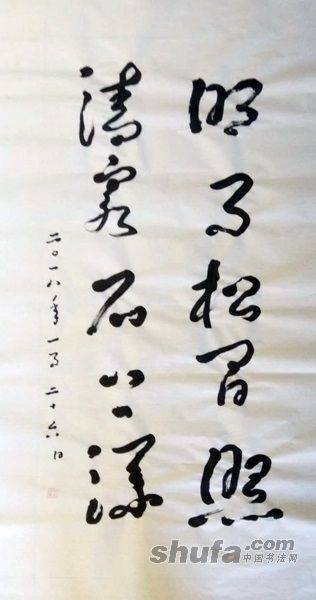 明月松间照
清泉石上流
二〇一八年一月二十六日
shufa.com
中国书法网